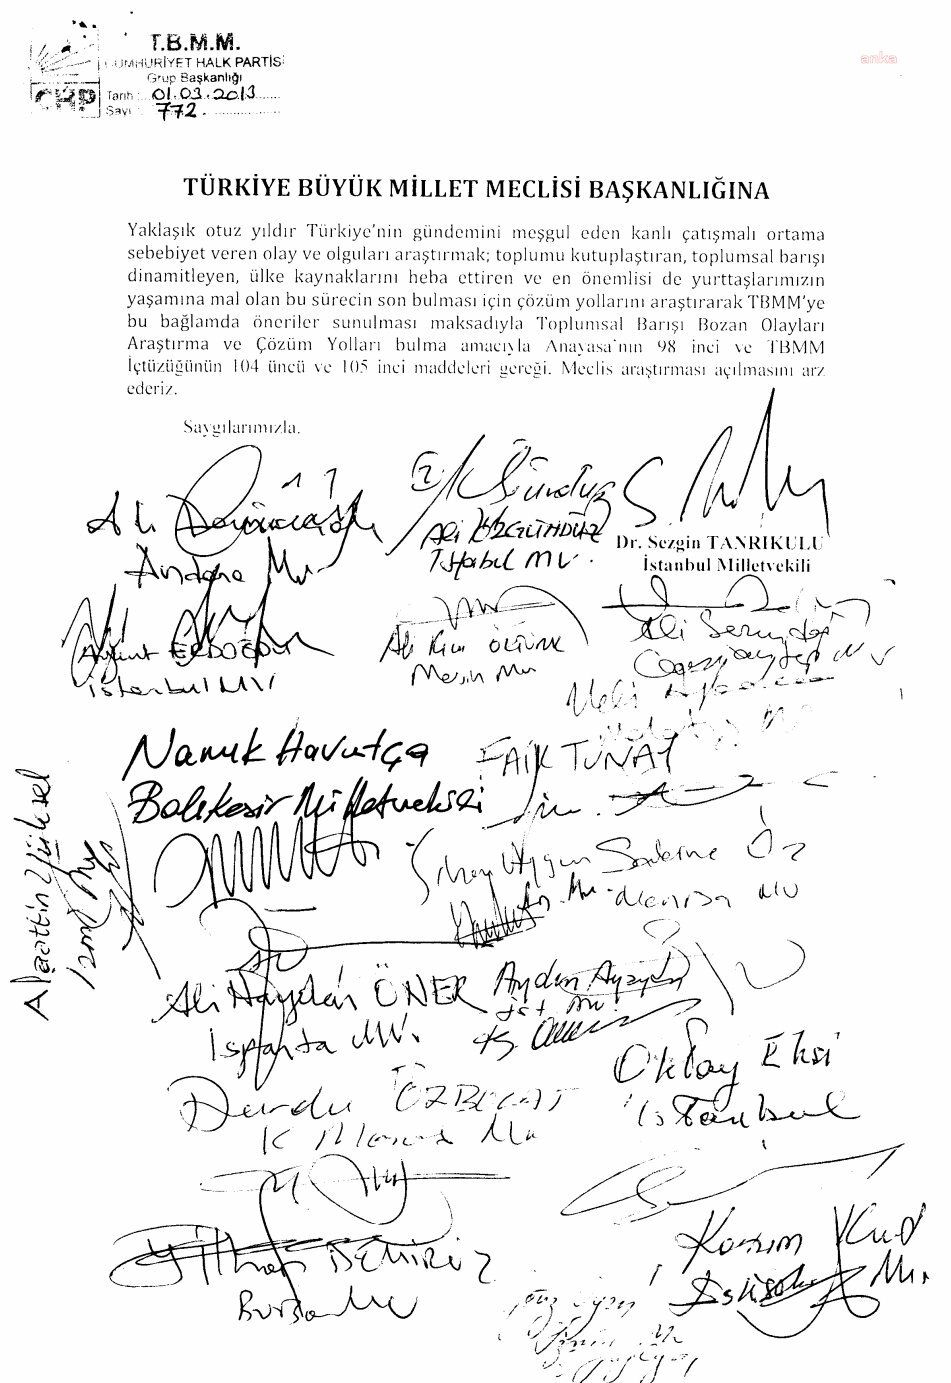 T.B.M.M.
CUMHURİYET HALK PARTİSİ
Grup Başkanlığı
CHP
Tarih : 01.03.2013
Sayı : 772.
anka
TÜRKİYE BÜYÜK MİLLET MECLİSİ BAŞKANLIĞINA
Yaklaşık otuz yıldır Türkiye'nin gündemini meşgul eden kanlı çatışmalı ortama
sebebiyet veren olay ve olguları araştırmak; toplumu kutuplaştıran, toplumsal barışı
dinamitleyen, ülke kaynaklarını heba ettiren ve en önemlisi de yurttaşlarımızın
yaşamına mal olan bu sürecin son bulması için çözüm yollarını araştırarak TBMM'ye
bu bağlamda öneriler sunulması maksadıyla Toplumsal Barışı Bozan Olayları
Araştırma ve Çözüm Yolları bulma amacıyla Anayasa'nın 98 inci ve TBMM
İçtüzüğünün 104 üncü ve 105 inci maddeleri gereği. Meclis araştırması açılmasını arz
ederiz.
Saygılarımızla.
Ali
Ali ÖZGÜNDÜZ
İstanbul MV.
Dr. Sezgin TANRIKULU
İstanbul Milletvekili
Aykut ERDOĞDU
İstanbul MV
Ali Rıza ÖZTÜRK
Mersin Mv
Ali Serindağ
Gaziantep MV
Veli
Malatya Mv
Namık Havutça
Balıkesir Milletvekili
FAİK TUNAY
Alaattin Yüksel
İzmir Mv
Aygün
Sakine Öz
Manisa MV
Ali Haydar ÖNER
Isparta MV.
Aydın Ayaydın
İst. Mv.
Durdu ÖZBOLAT
K Maraş Mv
Oktay Ekşi
İstanbul
İlhan DEMİRÖZ
Bursa Mv
Kazım Kurt
Eskişehir Mv.